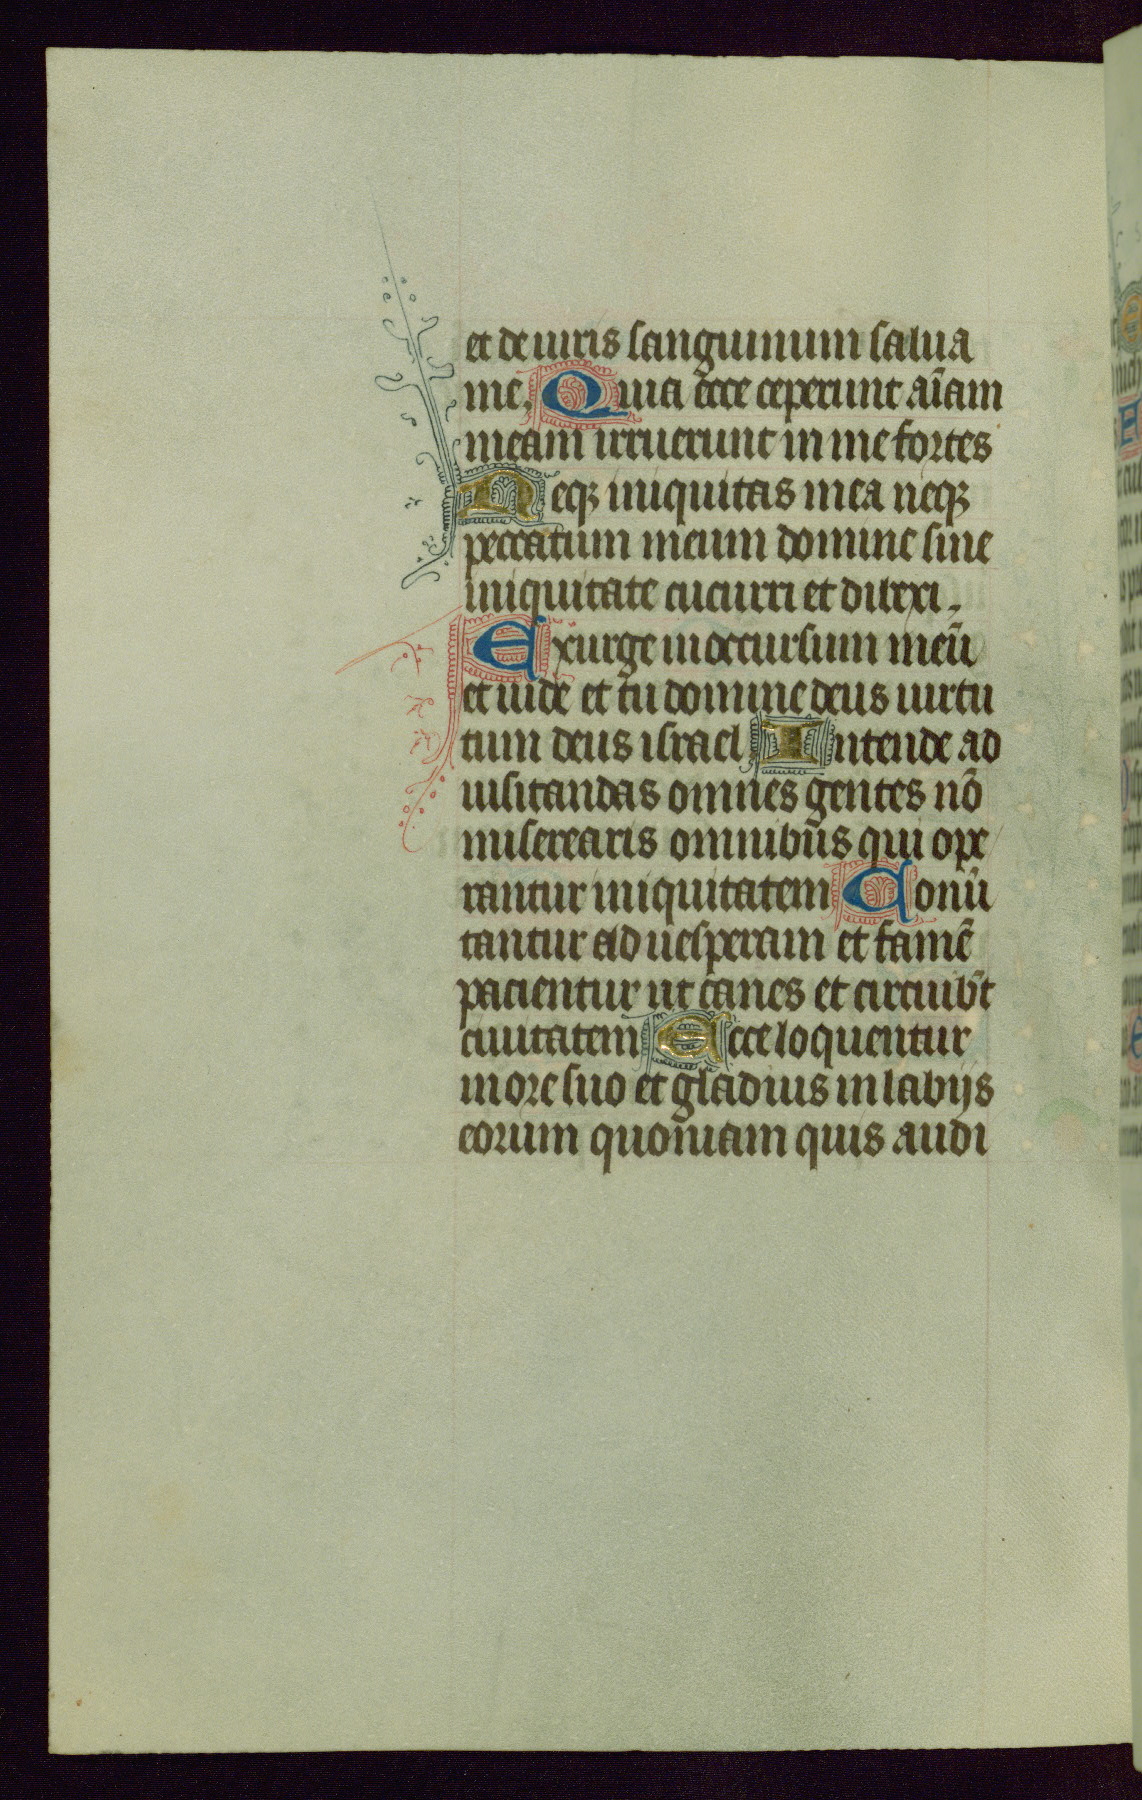 et de uiris sanguinum salua
me. Quia ecce ceperunt aīam
meam irruerunt in me fortes
Neqꝫ iniquitas mea neqꝫ
peccatum meum domine sine
iniquitate cucurri et dilexi.
Exurge in occursum meū
et uide et tu domine deus uirtu
tum deus israel Intende ad
uisitandas omnes gentes nō
miserearis omnibus qui ope
rantur iniquitatem Conū
tantur ad uesperam et famē
pacientur ut canes et circuibt̄
ciuitatem Ecce loquentur
in ore suo et gladius in labijs
eorum quoniam quis audi